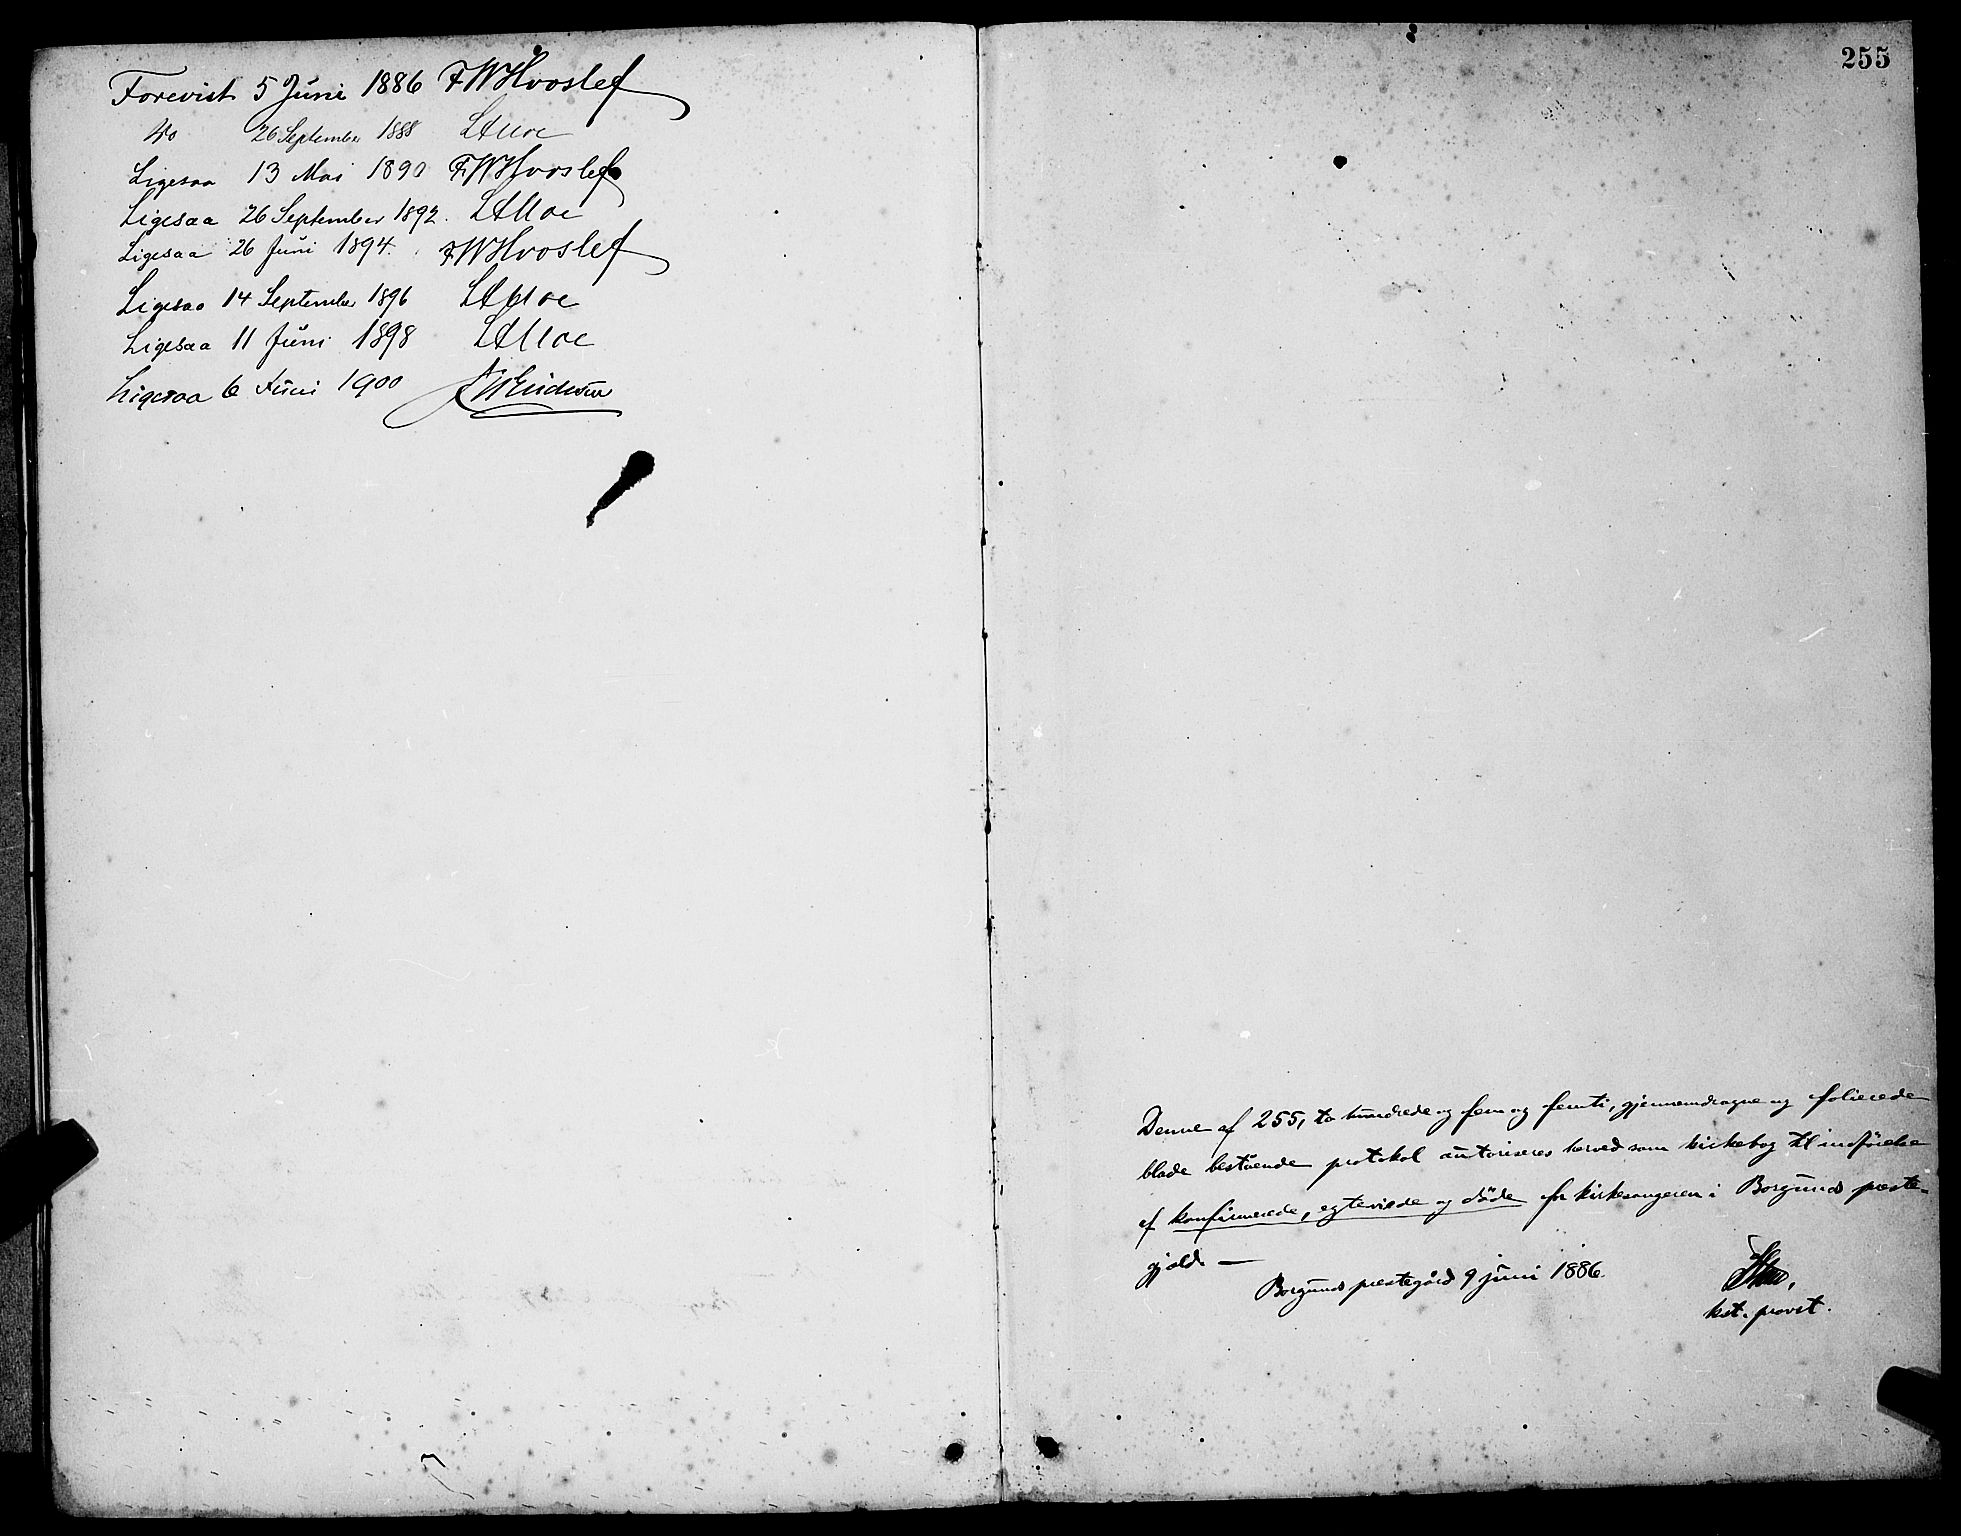 Forevist 5 Juni 1886 FWHvoslef
do 26 September 1888 LAMoe
Ligesaa 13 Mai 1890 FWHvoslef
Ligesaa 26 September 1892. LAMoe
Ligesaa 26 Juni 1894. FWHvoslef
Ligesaa 14 September 1896 LAMoe
Ligesaa 11 Juni 1898 LAMoe
Ligesaa 6 Juni 1900
255
Denne af 255, to hundrede og fem og femti, gjennemdragne og folierede
blade bestående protokol autoriseres herved som kirkebog til indførelse
af konfirmerede, egteviede og døde for kirkesangeren i Borgunds preste-
gjæld. —
Borgunds prestegård 9 juni 1886.
kst. provst.